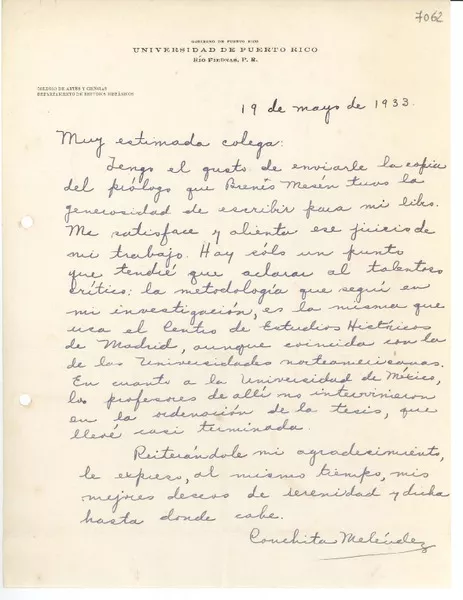 7062
GOBIERNO DE PUERTO RICO
UNIVERSIDAD DE PUERTO RICO
RÍO PIEDRAS, P. R.
COLEGIO DE ARTES Y CIENCIAS
DEPARTAMENTO DE ESTUDIOS HISPÁNICOS
19 de mayo de 1933.
Muy estimada colega:
Tengo el gusto de enviarle la copia
del prólogo que Brenés Mesén tuvo la
generosidad de escribir para mi libro.
Me satisface y alienta ese juicio de
mi trabajo. Hay sólo un punto
que tendré que aclarar al talentoso
crítico: la metodología que seguí en
mi investigación, es la misma que
usa el Centro de Estudios Históricos
de Madrid, aunque coincida con la
de las Universidades norteamericanas.
En cuanto a la Universidad de México,
los profesores de allá no intervinieron
en la ordenación de la tesis, que
llevé casi terminada.
Reiterándole mi agradecimiento,
le expreso, al mismo tiempo, mis
mejores deseos de serenidad y dicha
hasta donde cabe.
Conchita Meléndez